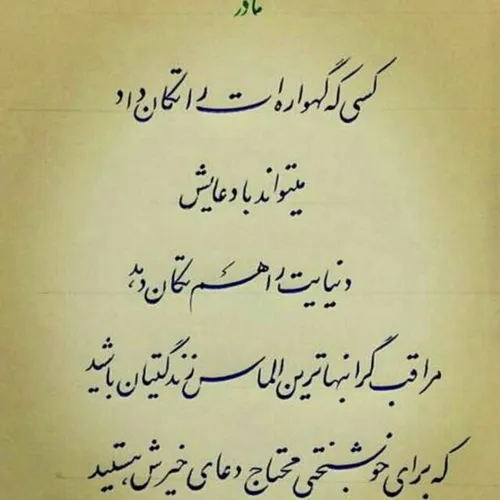 مادر
کسی که گهواره ات را تکان داد
میتواند با دعایش
دنیایت را هم تکان دهد
مراقب گرانبهاترین الماس زندگیتان باشید
که برای خوشبختی محتاج دعای خیرش هستید